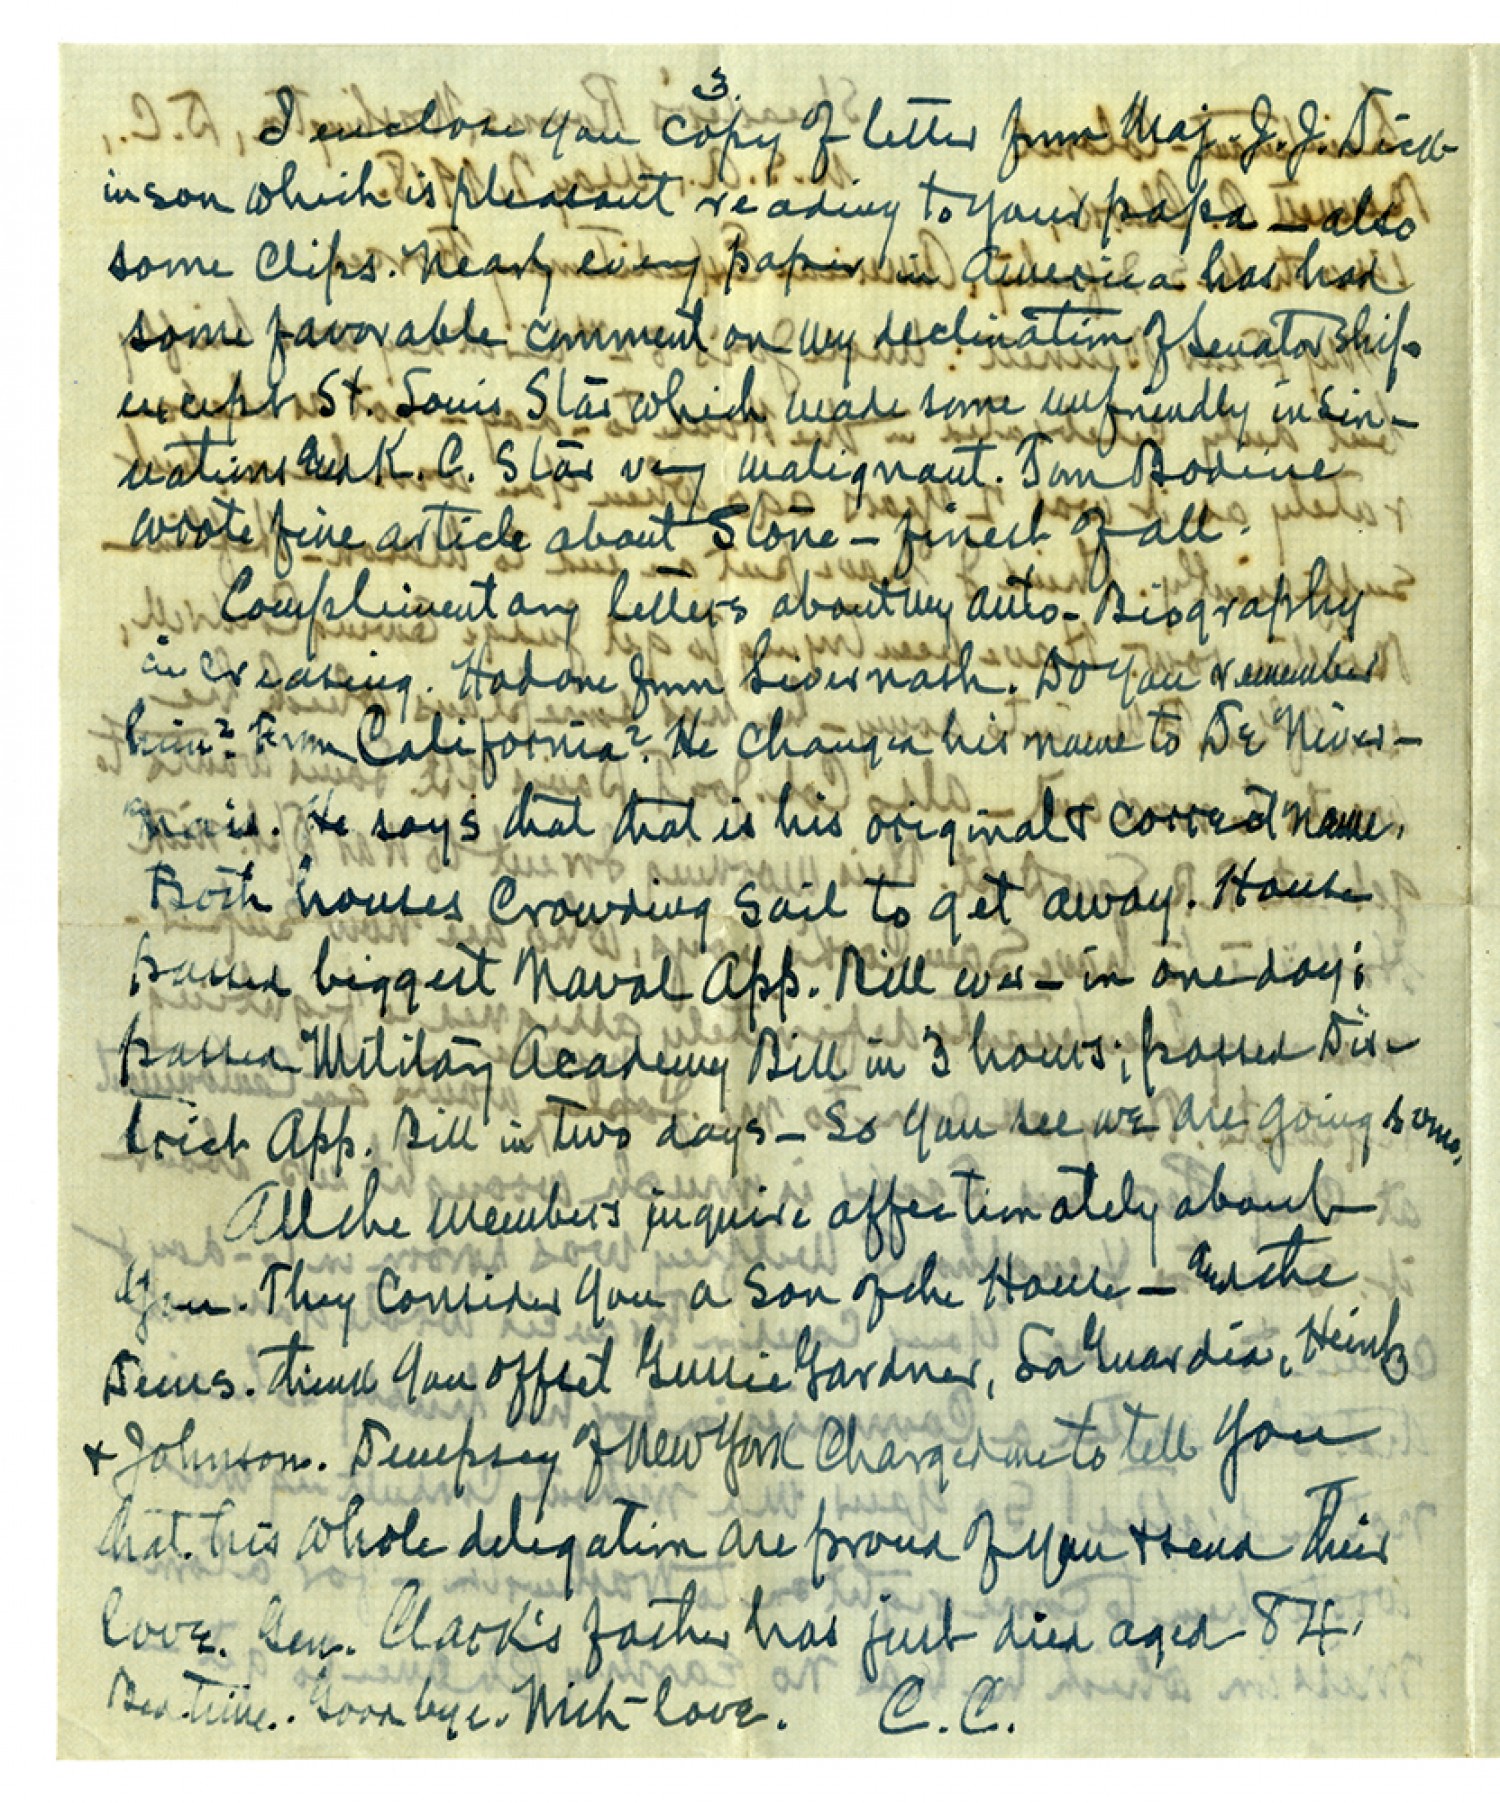 3.
I enclose you copy of letter from Maj. J. J. Dick-
inson which is pleasant reading to your papa – also
some clips. Nearly every paper in America has had
some favorable comment on my declination of Senatorship
except St. Louis Star which made some unfriendly insin-
uations and K. C. Star very malignant. Tom Bodine
wrote fine article about Stone – finest of all.
Complimentary letters about my Auto-Biography
increasing. Had one from Livernash. Do you remember
him? From California? He changed his name to De Niver-
nais. He says that that is his original & correct name.
Both houses crowding sail to get away. House
passed biggest Naval App. Bill ever – in one day;
passed Military Academy Bill in 3 hours; passed Dis-
trict App. Bill in two days – So you see we are going some.
All the members inquire affectionately about
you. They consider you a Son of the House – and the
Dems. think you offset Gussie Gardner, LaGuardia, Heintz
& Johnson. Dempsey of New York charged me to tell you
that his whole delegation are proud of you & send their
love. Gen. Clark's father has just died aged 84.
Bed time. Good bye. With love. C. C.